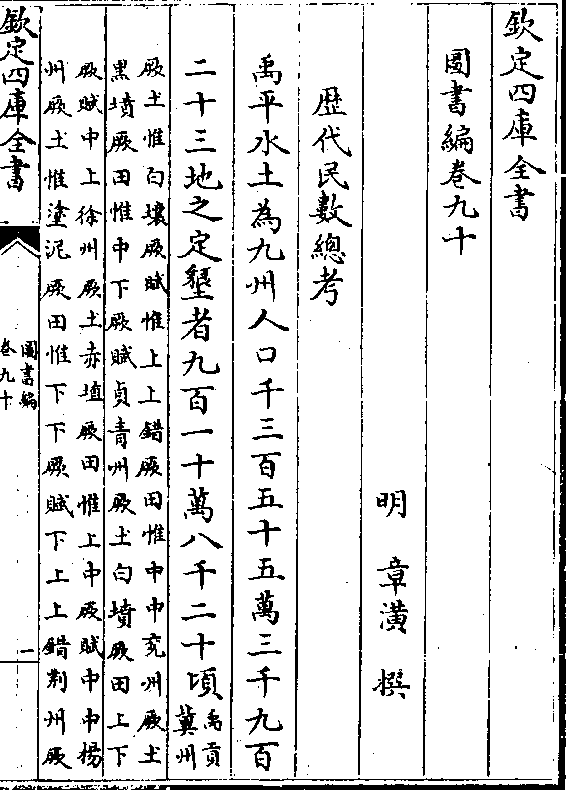 欽定四庫全書
圖書編卷九十
明 章潢 撰
歴代民數總考
禹平水土為九州人口千三百五十五萬三千九百
二十三地之定墾者九百一十萬八千二十頃
禹貢
冀州
厥土惟白壤厥賦惟上上錯厥田惟中中兖州厥土
黑墳厥田惟中下厥賦貞青州厥土白墳厥田上下
厥賦中上徐州厥土赤埴厥田惟上中厥賦中中揚
州厥土惟塗泥厥田惟下下厥賦下上上錯荆州厥
欽定四庫全書
圖書編
卷九十
一